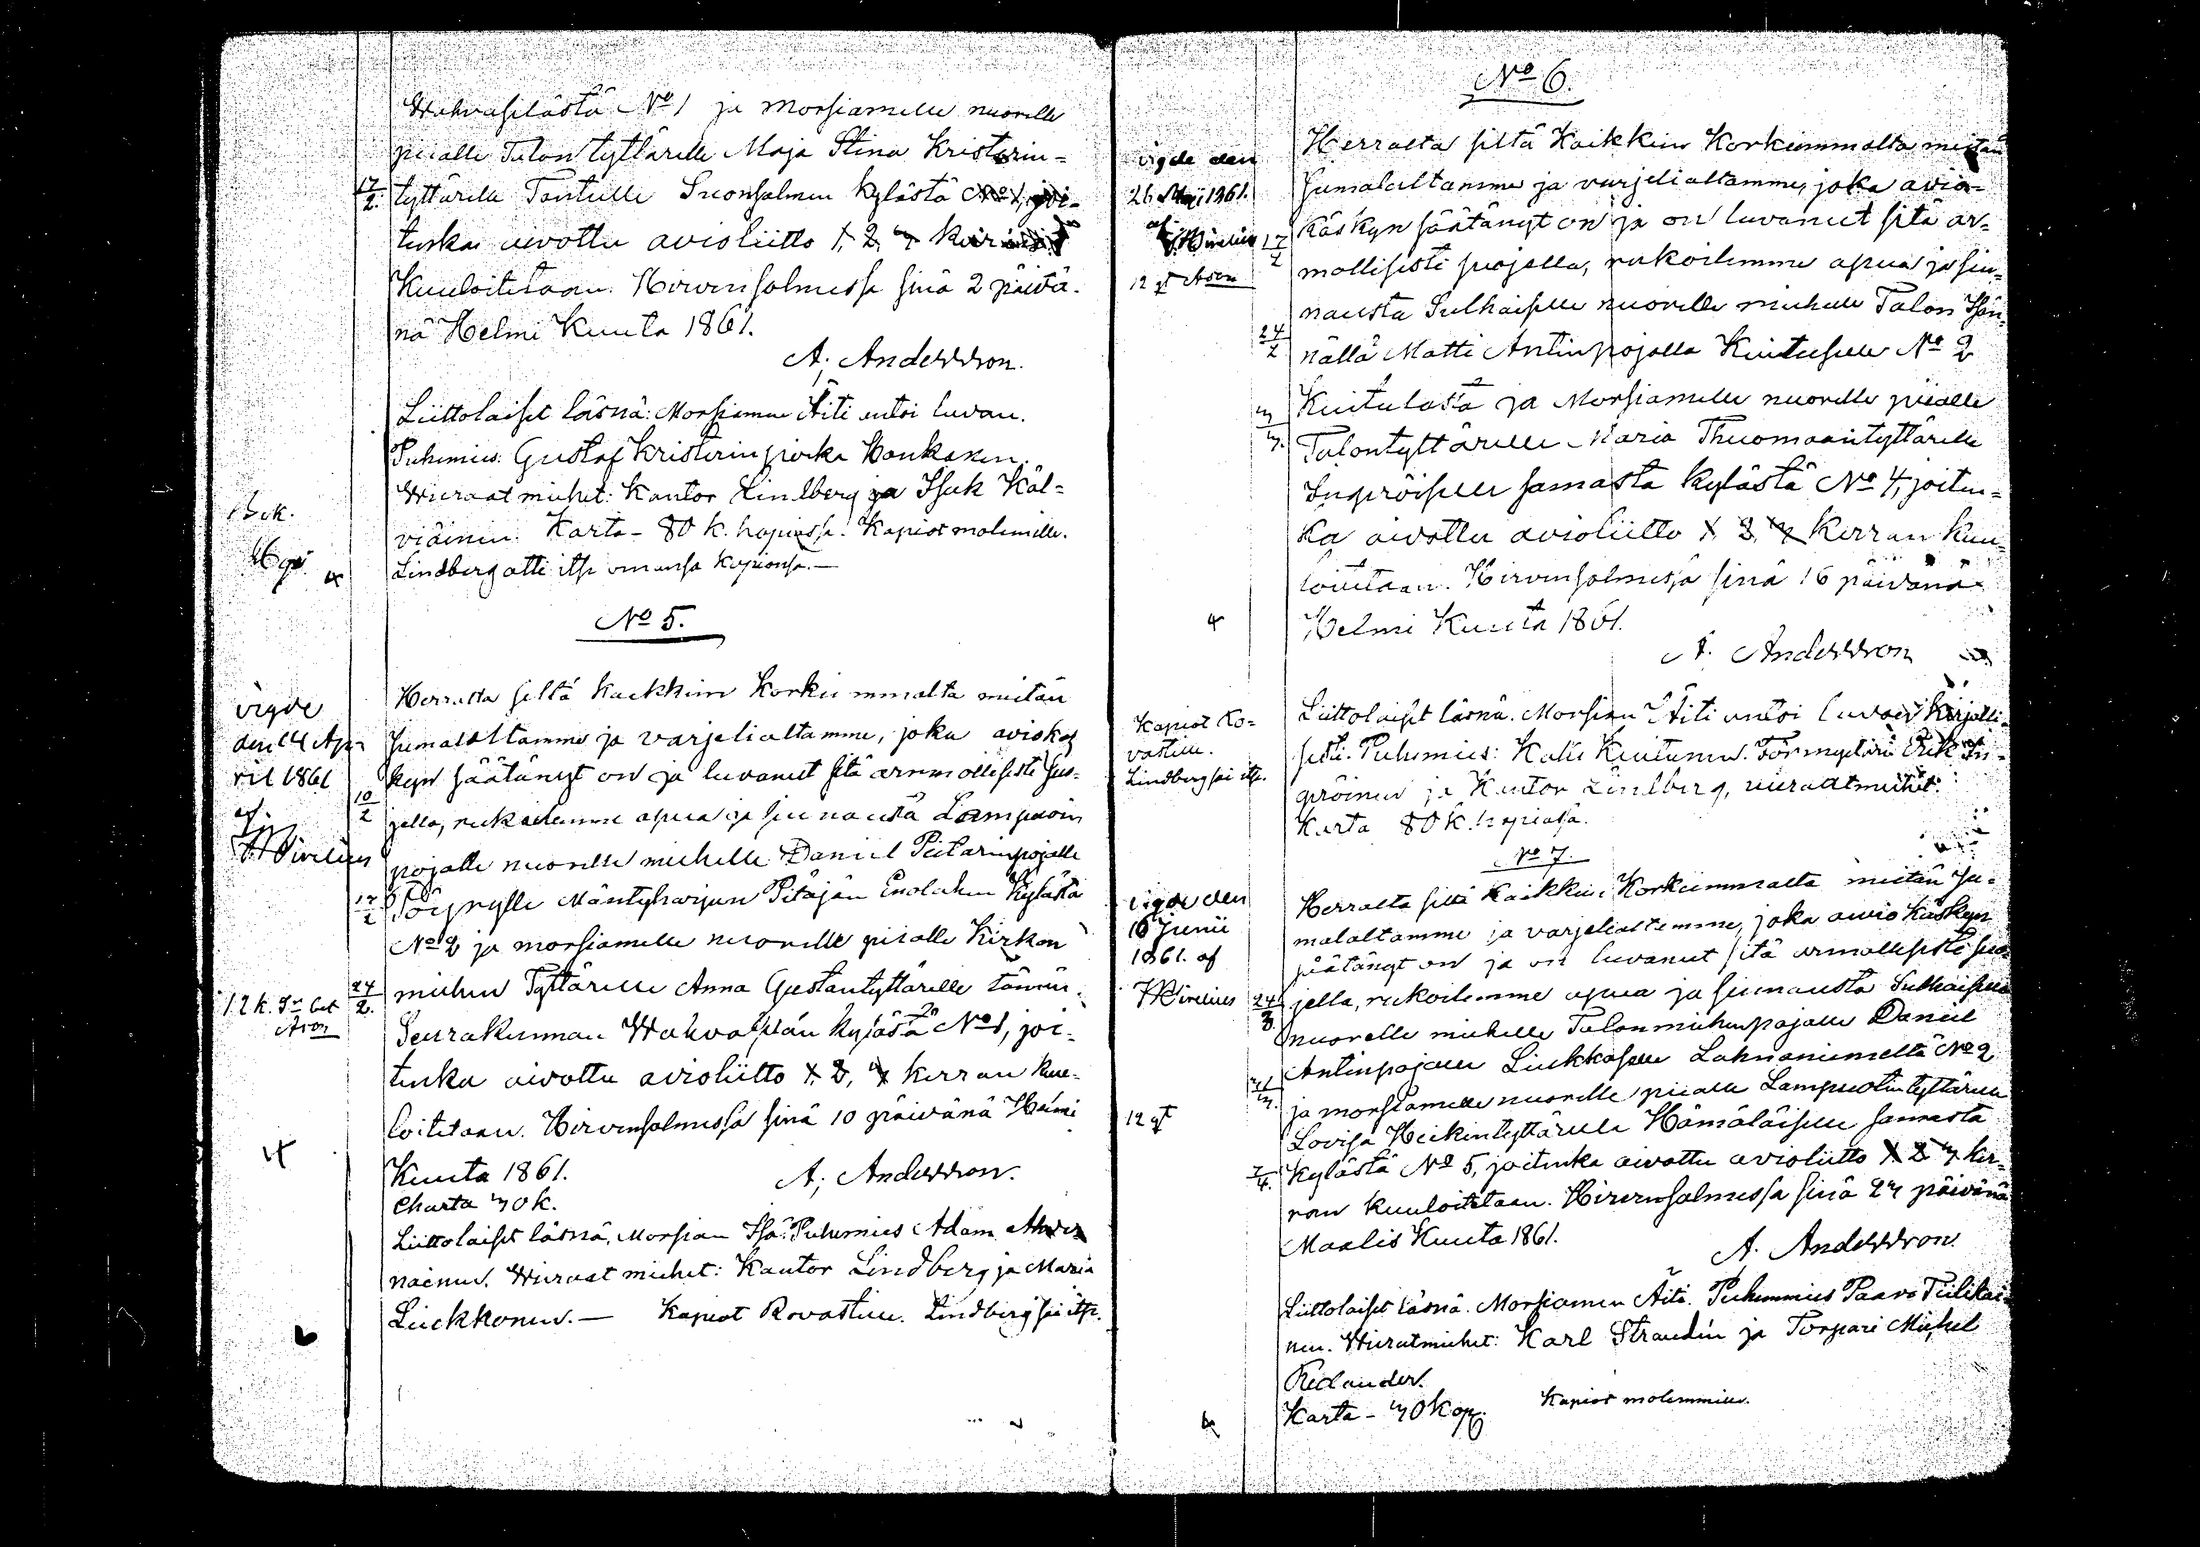 Wahvaselästä No 1 ja Morsiamelle nuorelle
piialle Talon tyttärelle Maja Stina Kristerin-
17/2 tyttärelle Suonsalmen kylästä No 1, joi-
tuska aivottu avioliitto 1, 2, 3
Kuuloitetaan. Hirvensalmessa sinä 2 päivä-
nä Helmi Kuuta 1861.
A; Andersson.
Liittolaiset läsnä: Morsiamen Äiti antoi luvan.
Puhemies: Gustaf Kristerinpoika Haukanen.
Wieraat miehet: Kantor Lindberg ja Isak Käl-
viäinen. Karta - 80 k. hopiassa. Kapiot molemille.
Lindberg otti itse omansa Kapionsa.—
No 5.
vigde
den 14 Ap-
ril 1861
af
Herralta siltä kaikkein korkiimmalta meitän
Jumalaltamme ja varjelialtamme, joka aviokäs-
kyn säätänyt on ja luvanut sitä armollisesti suo-
10/2 jella, rukoilemme apua ja siunausta Lampuoin
pojalle nuorelle miehelle Daniel Pietarinpojalle
17/2 Mäntyharjun Pitäjän Enolahen Kylästä
No 2 ja morsiamelle nuorelle piialle Kirkon
24/2. miehen Tyttärelle Anna Gustavtyttärelle tämän
Seurakunnan kylästä No 1, joi-
tuska aivottu avioliitto 1, 2, 3 kerran kuu-
loitetaan. Hirvensalmessa sinä 10 päivänä Helmi
Kuuta 1861.
A; Andersson.
Charta 30 k.
Liittolaiset läsnä, Morsian Isä. Puhemies Adam
nainen. Wieraat miehet: Kantor Lindberg ja Maria
Liukkonen.— Kapiot Rovastille. Lindberg sai itse.
No 6.
vigde den
26 Maji 1861.
af
Herralta siltä Kaikkein Korkiimmalta meitän
Jumalaltamme ja varjelialtamme, joka avio-
17/2 käskyn säätänyt on ja on luvanut sitä ar-
mollisesti suojella, rukoilemme apua ja siu-
nausta Sulhaiselle nuorelle miehelle Talon Isän-
24/2 nällä Matti Antinpojalla Kuituselle No 2
3/3. Kuitulasta ja Morsiamelle nuorelle piialle
Talontyttärelle Maria Thuomaantyttärelle
Ingröiselle samasta kylästä No 4, joitus-
ka aivottu avioliitto 1, 2, 3 Kerran kuu-
loitetaan. Hirvensalmessa sinä 16 päivänä
Helmi Kuuta 1861.
A. Andersson
Kapiot Ro-
vastille.
Lindberg sai itse.
Liittolaiset läsnä. Morsian Äiti antoi luvan kirjalli-
sesti. Puhemies: Kalle Kuitunen. Förmyndäri Erik In-
gröinen ja Kantor Lindberg, vieraat miehet.
Karta 80 k. hopiasa.
No 7.
vigde den
16 Junii
1861. af
Herralta siltä Kaikkein Korkiimmalta meitän Ju-
malaltamme ja varjelialtamme, joka avio käskyn
säätänyt on ja on luvanut sitä armollisesti suo-
24/3 jella, rukoilemme apua ja siunausta Sulhaiselle
nuorelle miehelle Talonmiehenpojalle Daniel
Antinpojalle Liukkoselle Lahnaniemeltä No 2
31/3. ja morsiamelle nuorelle piialle Lampuotin tyttärelle
Lovisa Heikintyttärelle Hämäläiselle samasta
7/4. Kylästä No 5, joituska aivottu avioliitto 1, 2, 3 ker-
ran kuuloitetaan. Hirvensalmessa sinä 23 päivänä
Maalis Kuuta 1861.
A. Andersson
Liittolaiset läsnä. Morsiamen Äiti. Puhemmies Paavo Tiilikai-
nen. Wieratmiehet: Karl Strandén ja Torpari Michel
Relander.
Karta - 30 Kop. Kapiot molemmille.